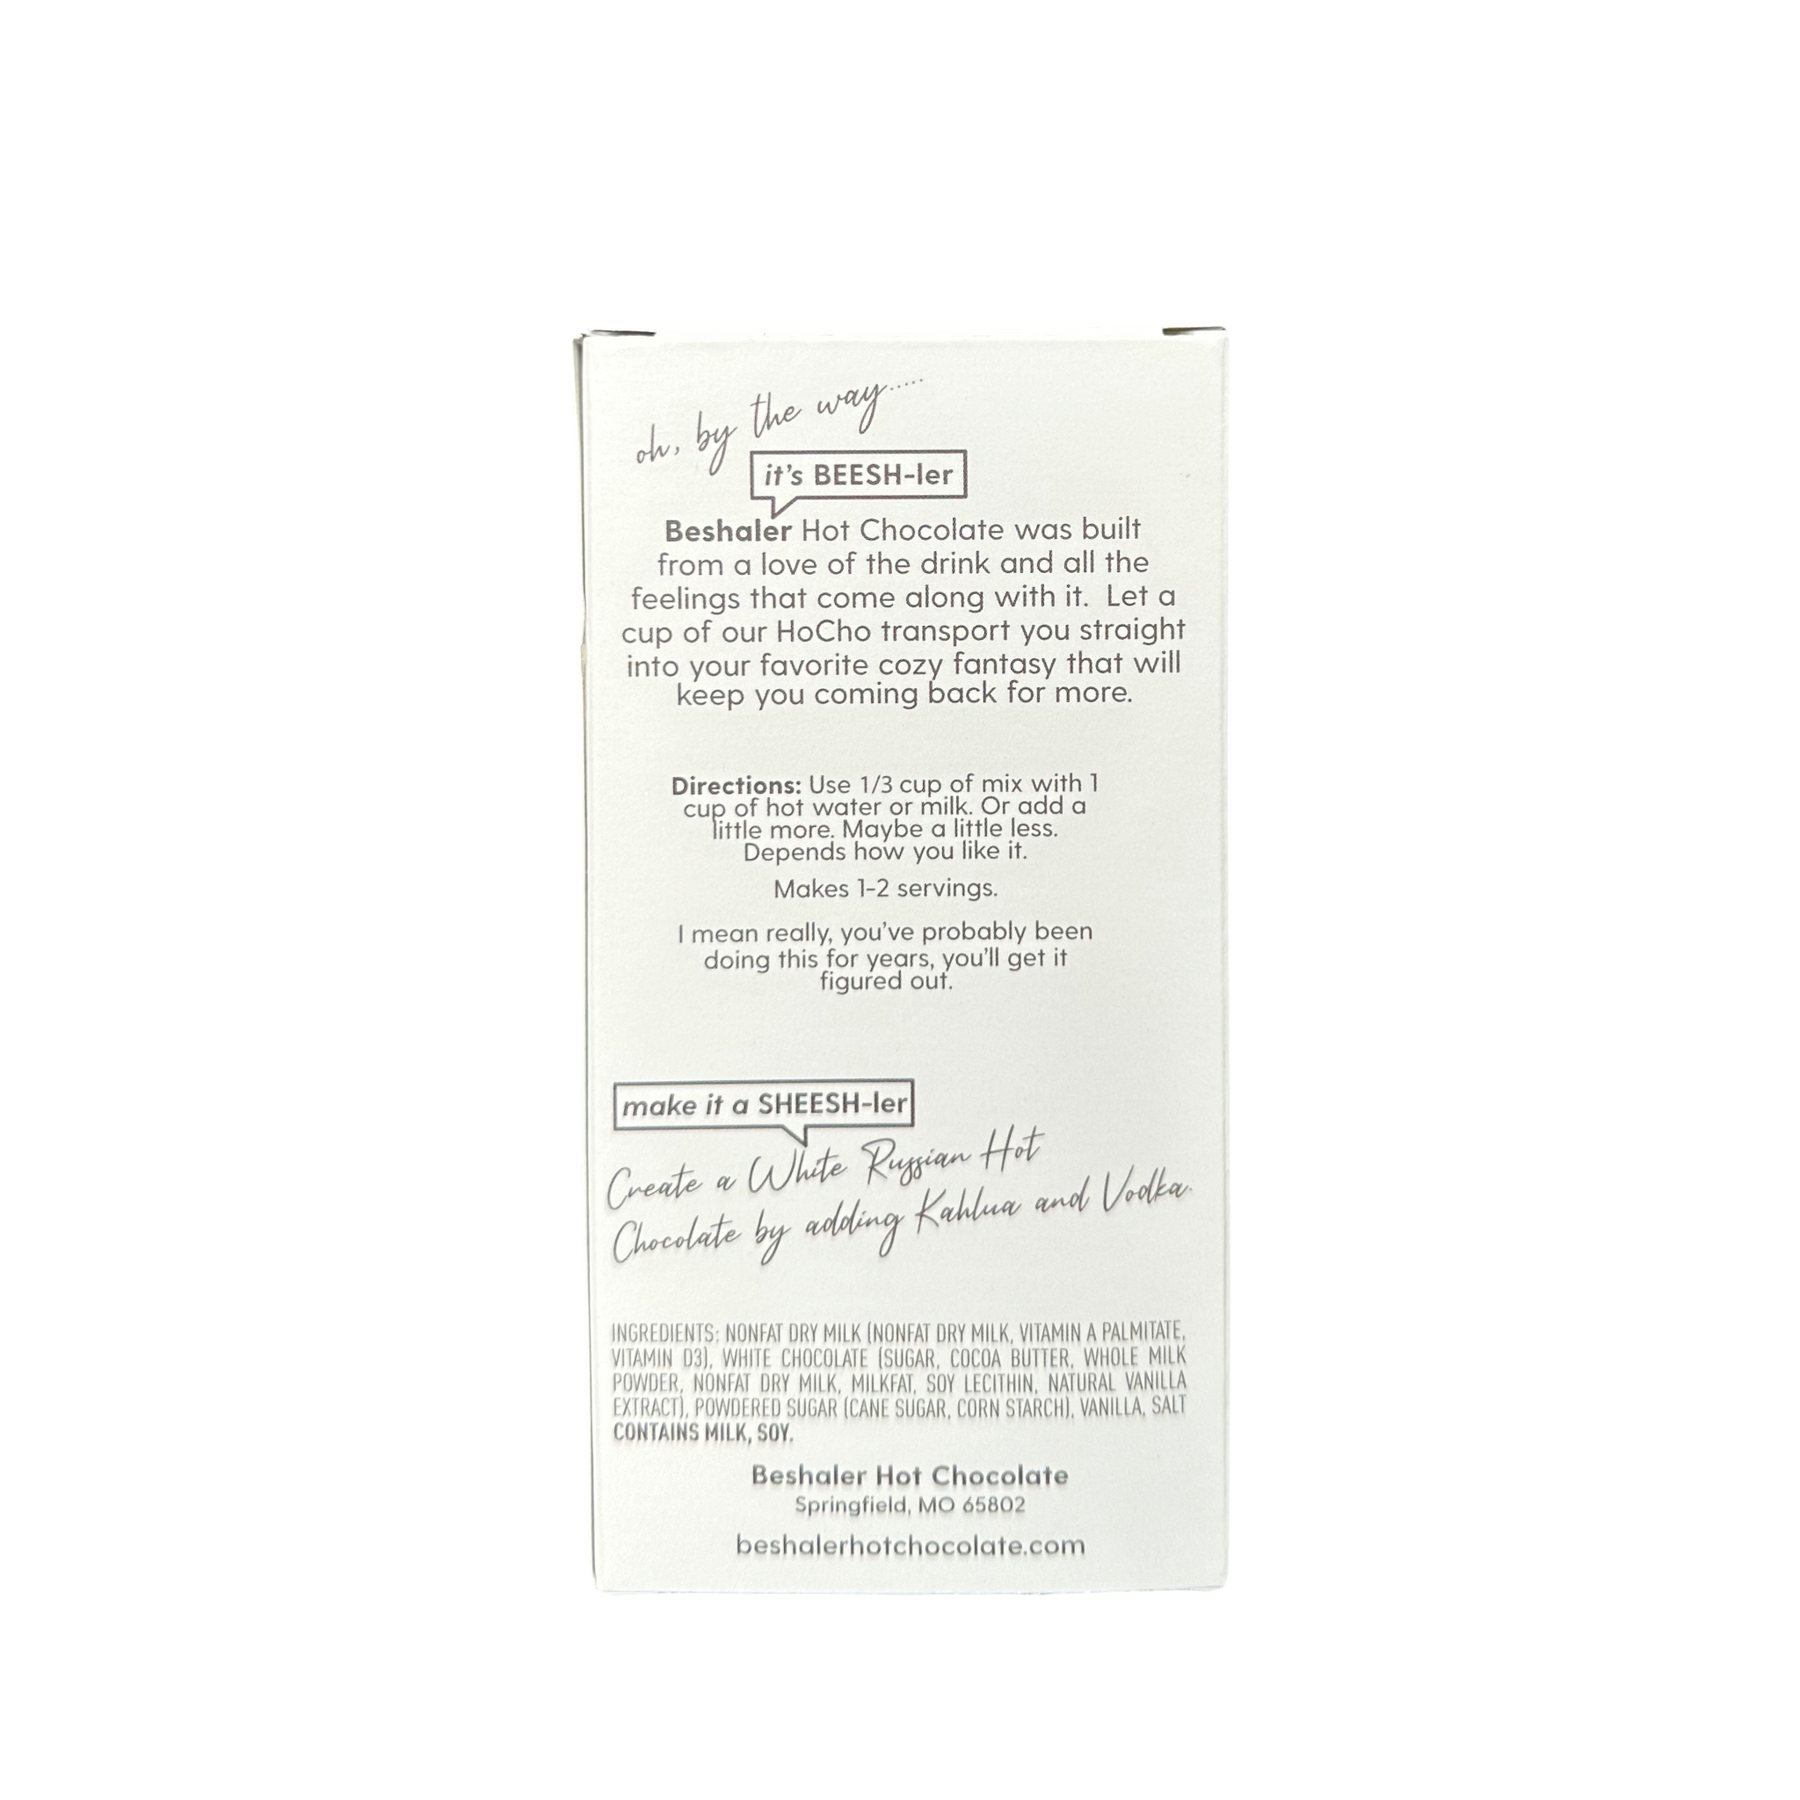 oh, by the way.....
it's BEESH-ler
Beshaler Hot Chocolate was built
from a love of the drink and all the
feelings that come along with it. Let a
cup of our HoCho transport you straight
into your favorite cozy fantasy that will
keep you coming back for more.
Directions: Use 1/3 cup of mix with 1
cup of hot water or milk. Or add a
little more. Maybe a little less.
Depends how you like it.
Makes 1-2 servings.
I mean really, you've probably been
doing this for years, you'll get it
figured out.
make it a SHEESH-ler
Create a White Russian Hot
Chocolate by adding Kahlua and Vodka.
INGREDIENTS: NONFAT DRY MILK (NONFAT DRY MILK, VITAMIN A PALMITATE,
VITAMIN D3), WHITE CHOCOLATE (SUGAR, COCOA BUTTER, WHOLE MILK
POWDER, NONFAT DRY MILK, MILKFAT, SOY LECITHIN, NATURAL VANILLA
EXTRACT), POWDERED SUGAR (CANE SUGAR, CORN STARCH), VANILLA, SALT
CONTAINS MILK, SOY.
Beshaler Hot Chocolate
Springfield, MO 65802
beshalerhotchocolate.com